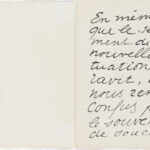 En mêm
que le se
ment d
nouvelle
tuation
ravit,
nous ren
confus p
le souve
de souc